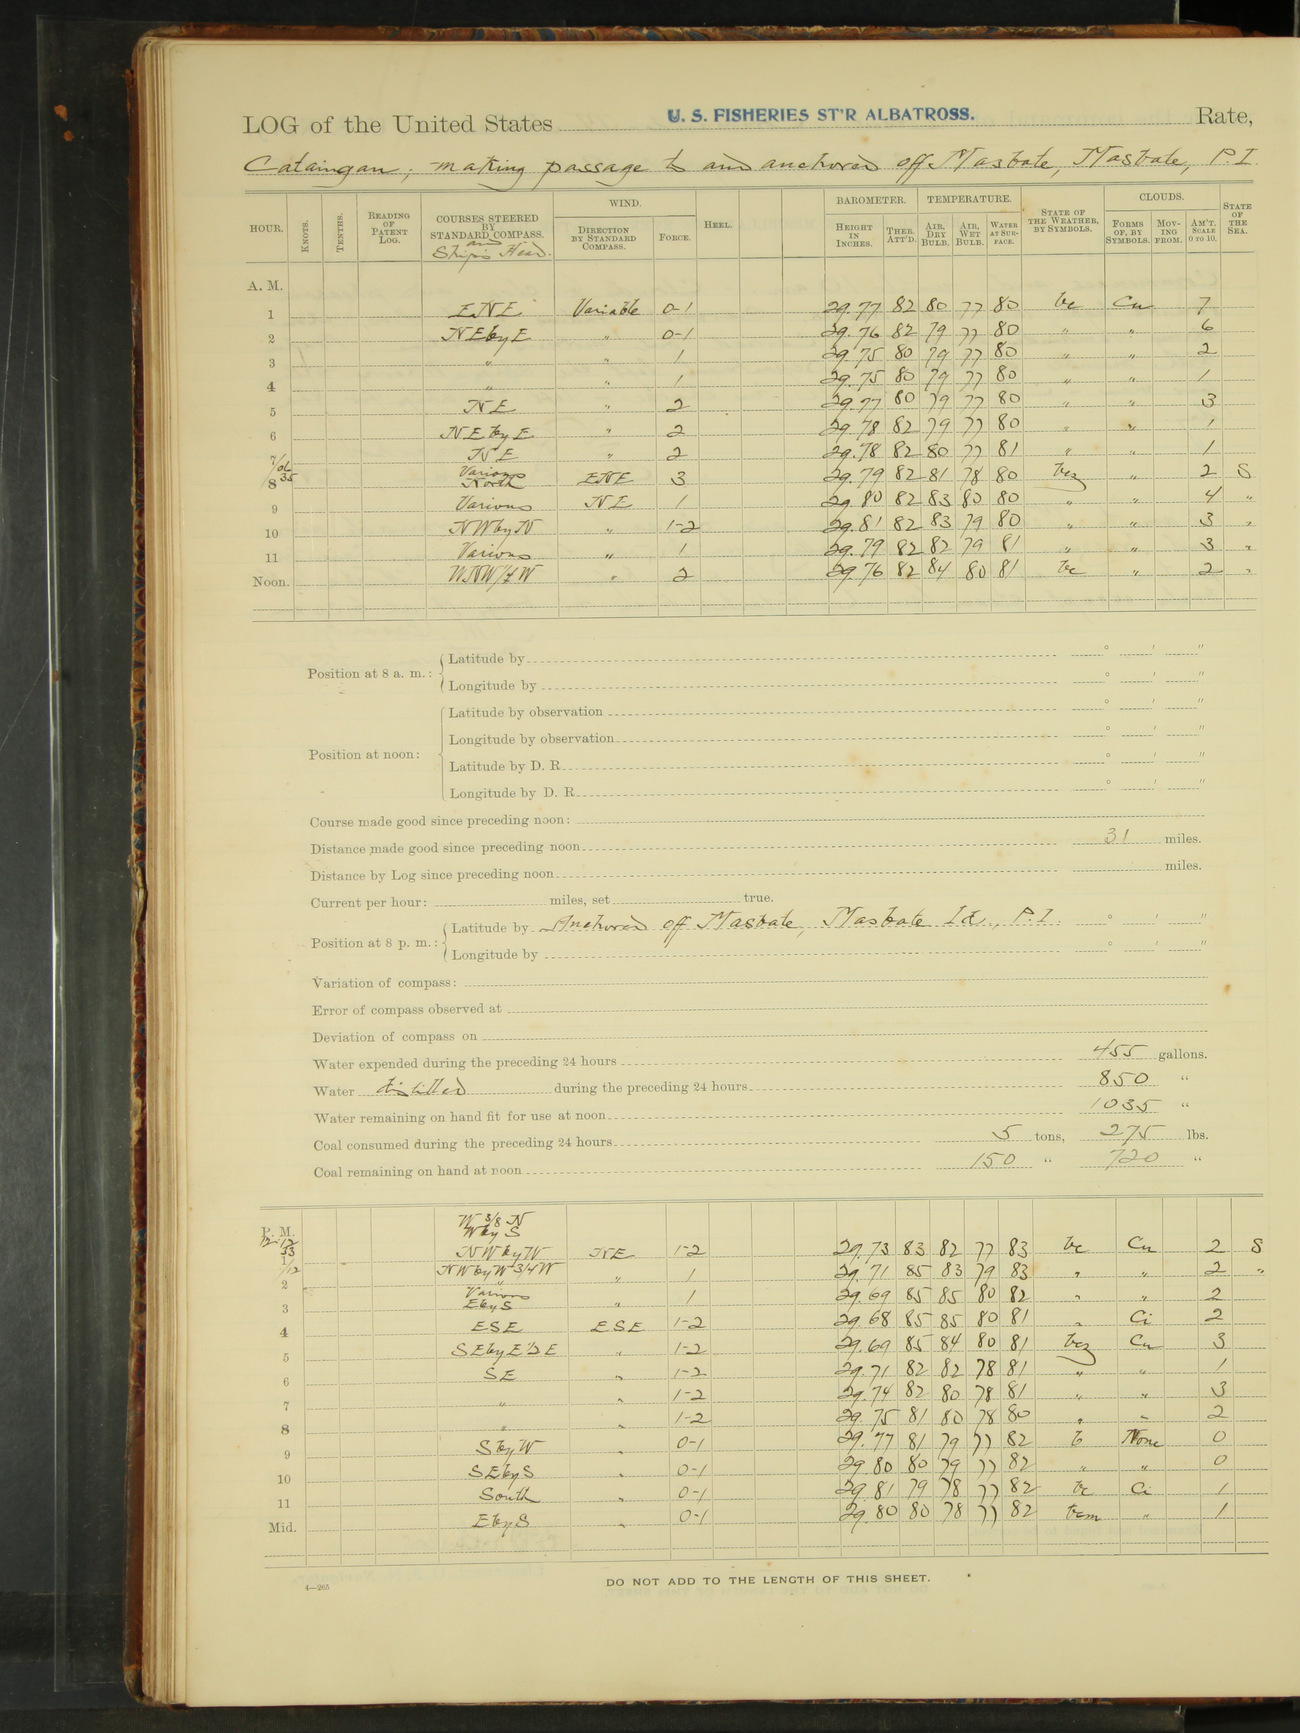 LOG of the United States U. S. FISHERIES ST'R ALBATROSS. Rate,
Cataingan, making passage to and anchored off Masbate, Masbate, P. I.
HOUR. KNOTS. TENTHS. READING OF PATENT LOG. COURSES STEERED BY STANDARD COMPASS. and Ship's Head. WIND. DIRECTION BY STANDARD COMPASS. FORCE. HEEL. BAROMETER. HEIGHT IN INCHES. THER. ATT'D. TEMPERATURE. AIR, DRY BULB. AIR, WET BULB. WATER AT SURFACE. STATE OF THE WEATHER, BY SYMBOLS. CLOUDS. FORMS OF, BY SYMBOLS. MOVING FROM. AM'T. SCALE 0 TO 10. STATE OF THE SEA.
A. M.
1 ENE Variable 0-1 29.77 82 80 77 80 bc Cu 7
2 NEbyE " 0-1 29.76 82 79 77 80 " " 6
3 " " 1 29.75 80 79 77 80 " " 2
4 " " 1 29.75 80 79 77 80 " " 1
5 NE " 2 29.77 80 79 77 80 " " 3
6 NEbyE " 2 29.78 82 79 77 80 " " 1
7 NE " 2 29.78 82 80 77 81 " " 1
8 35 Various North ENE 3 29.79 82 81 78 80 bcz " 2 S
9 Various NE 1 29.80 82 83 80 80 " " 4 "
10 NWbyN " 1-2 29.81 82 83 79 80 " " 3 "
11 Various " 1 29.79 82 82 79 81 " " 3 "
Noon. WNW1/4W " 2 29.76 82 84 80 81 bc " 2 "
Position at 8 a. m.: Latitude by ° ' "
Longitude by ° ' "
Position at noon: Latitude by observation ° ' "
Longitude by observation ° ' "
Latitude by D. R. ° ' "
Longitude by D. R. ° ' "
Course made good since preceding noon:
Distance made good since preceding noon 31 miles.
Distance by Log since preceding noon miles.
Current per hour: miles, set true.
Position at 8 p. m.: Latitude by Anchored off Masbate, Masbate Id., P. I. ° ' "
Longitude by ° ' "
Variation of compass:
Error of compass observed at
Deviation of compass on
Water expended during the preceding 24 hours 455 gallons.
Water distilled during the preceding 24 hours 850 "
Water remaining on hand fit for use at noon 1035 "
Coal consumed during the preceding 24 hours 5 tons, 275 lbs.
Coal remaining on hand at noon 150 " 720 "
P. M. W 3/8 N
WbyS
1 NWbyW NE 1-2 29.73 83 82 77 83 bc Cu 2 S
2 NWbyW 3/4 W " 1 29.71 85 83 79 83 " " 2 "
3 Various EbyS " 1 29.69 85 85 80 82 " " 2
4 ESE ESE 1-2 29.68 85 85 80 81 " Ci 2
5 SEbyE 1/2 E " 1-2 29.69 85 84 80 81 bcz Cu 3
6 SE " 1-2 29.71 82 82 78 81 " " 1
7 " " 1-2 29.74 82 80 78 81 " " 3
8 " " 1-2 29.75 81 80 78 80 " " 2
9 SbyW " 0-1 29.77 81 79 77 82 b None 0
10 SEbyS " 0-1 29.80 80 79 77 82 " " 0
11 South " 0-1 29.81 79 78 77 82 bc Ci 1
Mid. EbyS " 0-1 29.80 80 78 77 82 bcm " 1
4—265
DO NOT ADD TO THE LENGTH OF THIS SHEET.